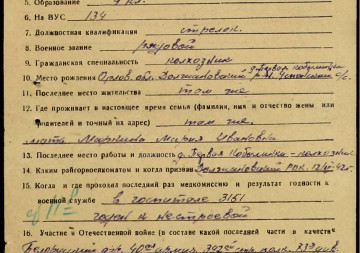 5. Образование 4 кл.
6. На ВУС 134
7. Должностная квалификация стрелок
8. Военное звание рядовой
9. Гражданская специальность колхозник
10. Место рождения Орлов. обл. Должанский р-н
11. Последнее место жительства там же
12. Где проживает в настоящее время семья (фамилия, имя и отчество жены или
родителей и точный их адрес) там же,
мать Мария Ивановна
13. Последнее место работы и должность д. Первая - колхозник
14. Каким райгорвоенкоматом и когда призван Должанский РВК
15. Когда и где проходил последний раз медкомиссию и результат годности к
военной службе в госпитале 3151
годен к нестроевой
16. Участие в Отечественной войне (в составе какой последней части и в качестве